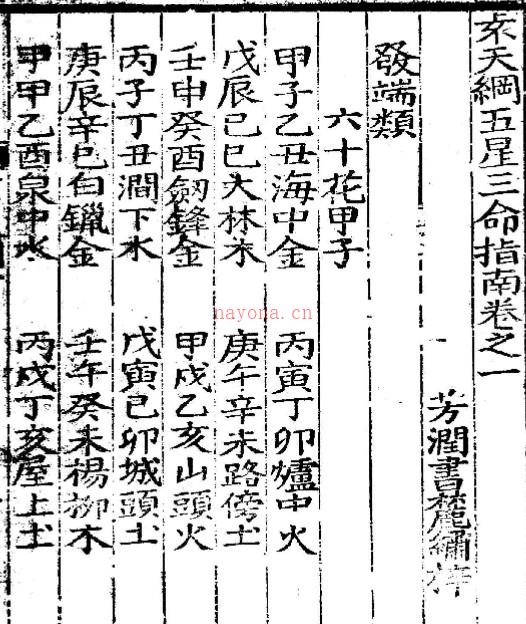 袁天綱五星三命指南卷之一
芳潤書麓繡梓
發端類
六十花甲子
甲子乙丑海中金 丙寅丁卯爐中火
戊辰己巳大林木 庚午辛未路傍土
壬申癸酉劒鋒金 甲戌乙亥山頭火
丙子丁丑澗下水 戊寅己卯城頭土
庚辰辛巳白鑞金 壬午癸未楊柳木
甲甲乙酉泉中水 丙戌丁亥屋上土
nayona.cn